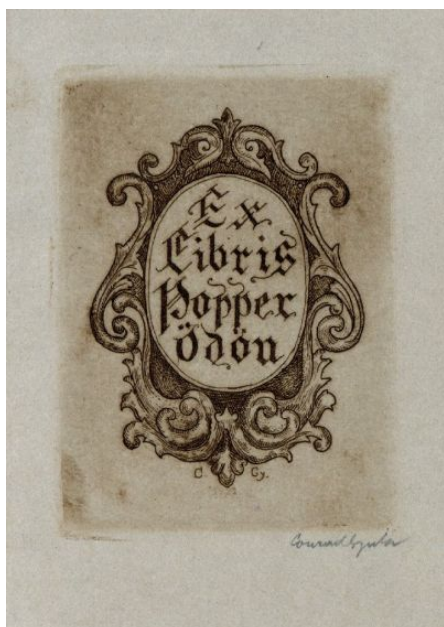 Ex
Libris
Popper
Ödön
C. Gy.
Conrad Gyula